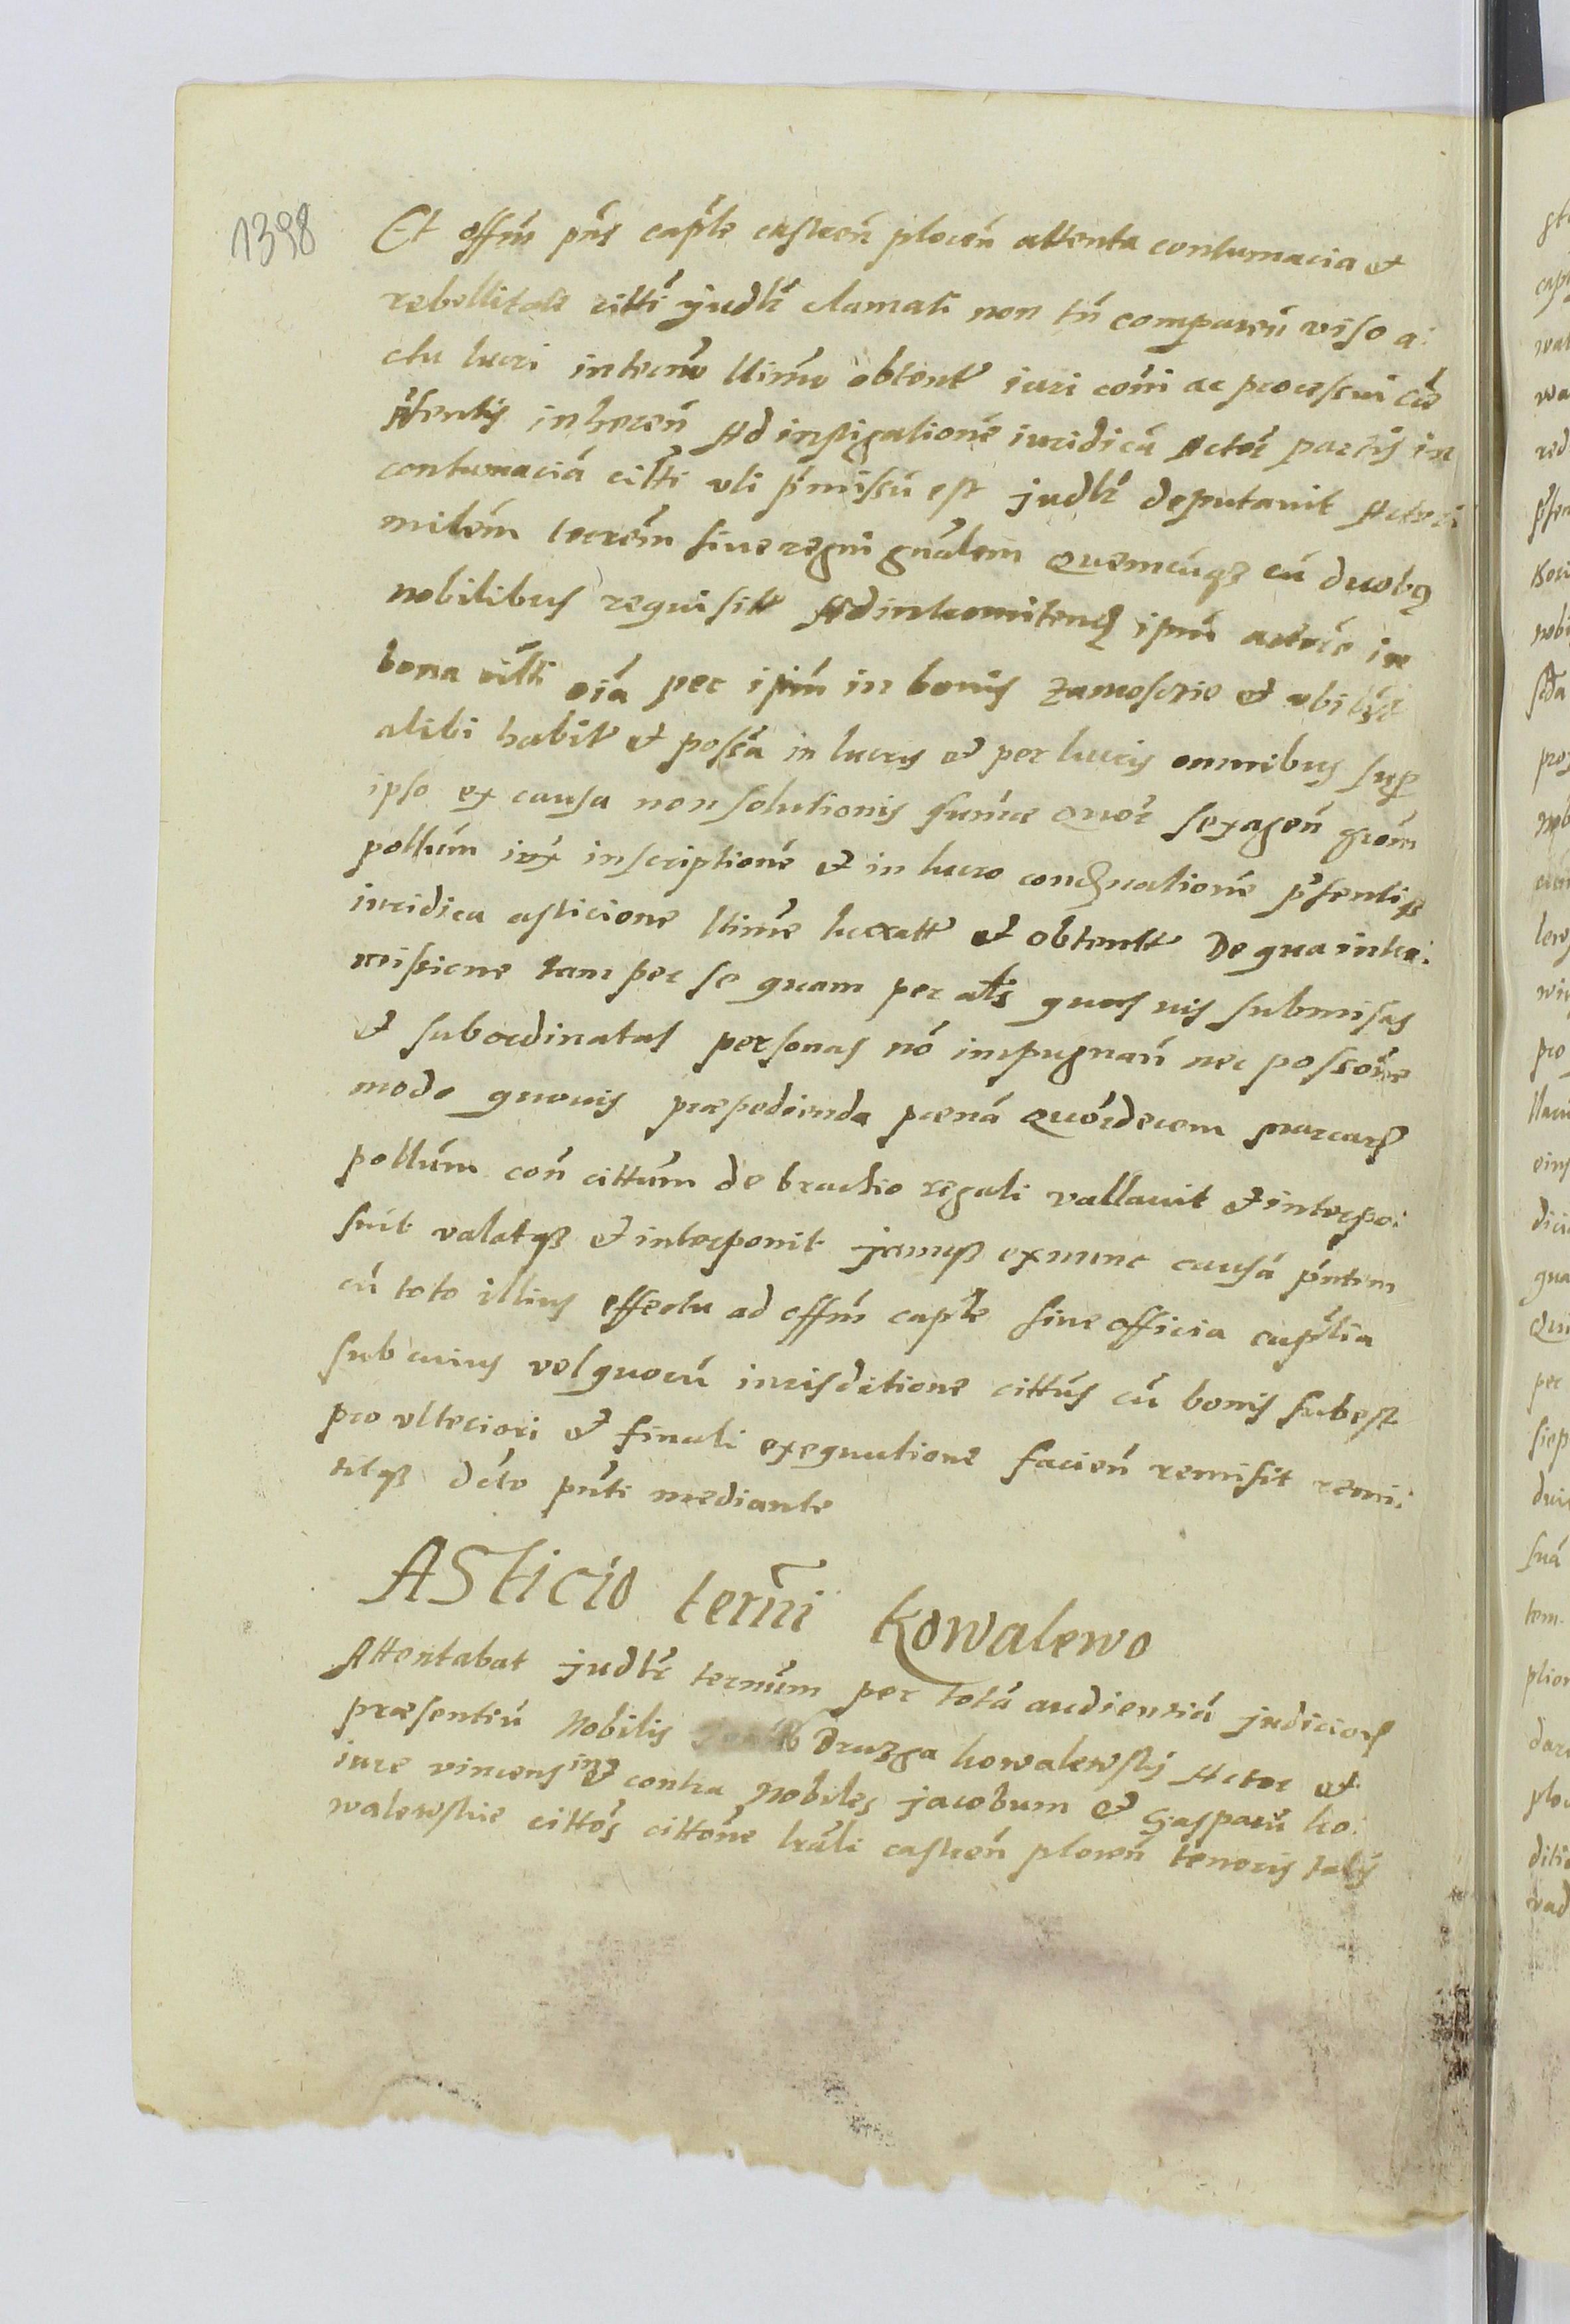 1398
Et offm̃ pñs cap̃le castreñ ploceñ attenta contumacia et
rebellitate citti judlr̃ clamati non tñ compareñ viso a:
ctu lucri in termo ltimo obtent iuri com̃i ac processui cãe
p̃sentis inhereñ Ad instigationẽ iuridicã Actor̃ partis in
contumaciã citti vti p̃missũ est judlr̃ deputavit Actori
milem̃ terrem̃ sive regni gñalem quemcũqz cũ duobq
nobilibus requisit Ad intromitend ipm̃ actorẽ in
bona citti oĩa per ipm̃ in bonis Zamoscie et ubilt
alibi habit et possa in lucris et per lucris omnibus sup
ipso ex causa non solutionis sum̃e quor̃ sexagen grom̃
pollum̃ iux inscriptionẽ et in lucro condnationẽ p̃sentisqz
iuridica asticione ltime lucratt et obtent De qua intro:
missione tam per se quam per als quas vis submissas
et subordinatas personas nõ impugnañ nec possõne
modo quovis præpedienda pœnã quórdecem marcar
pollum̃ coñ cittum̃ de brachio regali vallavit et interpo:
suit valatqz et interponit jamqz exnunc causã pñtem
cũ toto illius effectu ad offm̃ cap̃le sive officia cap̃lia
sub cuius vel quorũ iurisditione cittus cũ bonis subest
pro ulteriori et finali exequutione facieñ remisit remi:
titqz dcto pñti mediante
Asticio term̃i Kowalewo
Attentabat judlr̃ termum̃ per totã audienciã judicior
præsentiũ Nobilis Druzga kowalewskij Actor et
iure vincens in et contra Nobiles jacobum et Gasparũ ko:
walewskie cittos cittone lrali castreñ ploceñ tenoris talis